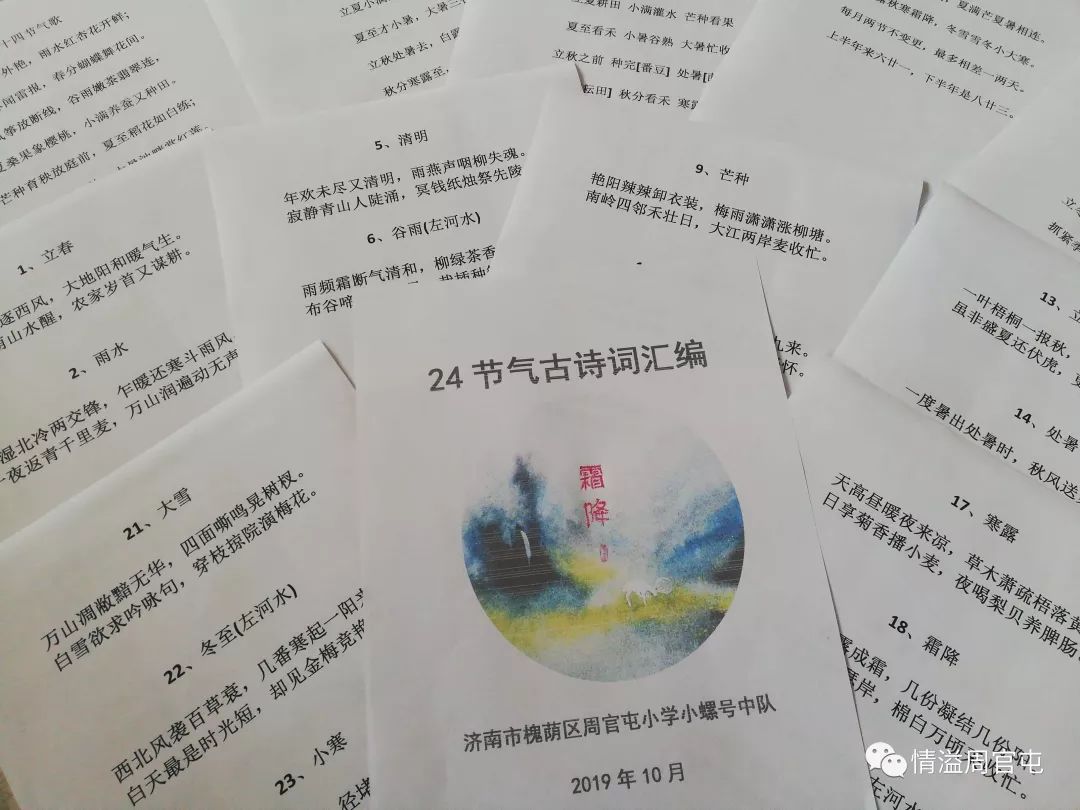 十四节气歌
外艳，雨水红杏花开鲜；
闻雷报，春分蝴蝶舞花间。
筝放断线，谷雨嫩茶翡翠连，
桑果象樱桃，小满养蚕又种田。
芒种育秧放庭前，夏至稻花如白练；
立夏小满
夏至才小暑，大暑三
立秋处暑去，白露
秋分寒露至，
立夏耕田 小满灌水 芒种看果
夏至看禾 小暑谷熟 大暑忙收
立秋之前 种完[番豆] 处暑
耘田] 秋分看禾 寒露
秋寒霜降，冬雪雪冬小大寒。
每月两节不变更，最多相差一两天。
上半年来六廿一，下半年是八廿三。
抓紧
1、立春
逐西风，大地阳和暖气生。
山水醒，农家岁首又谋耕。
2、雨水
湿北冷两交锋，乍暖还寒斗雨风。
一夜返青千里麦，万山润遍动无声
5、清明
年欢未尽又清明，雨燕声咽柳失魂。
寂静青山人陡涌，冥钱纸烛祭先陵
6、谷雨(左河水)
雨频霜断气清和，柳绿茶香
布谷啼
9、芒种
艳阳辣辣卸衣装，梅雨潇潇涨柳塘。
南岭四邻禾壮日，大江两岸麦收忙。
来。
怀。
13、立
一叶梧桐一报秋，
虽非盛夏还伏虎，
14、处暑
一度暑出处暑时，秋风送
17、寒露
天高昼暖夜来凉，草木萧疏梧落黄
日享菊香播小麦，夜喝梨贝养脾肠
18、霜降
成霜，几份凝结几份阳
岸，棉白万顷千收忙。
左河水)
21、大雪
万山凋敝黯无华，四面嘶鸣晃树杈。
白雪欲求吟咏句，穿枝掠院演梅花。
22、冬至(左河水)
西北风袭百草衰，几番寒起一阳来
白天最是时光短，却见金梅竞艳
23、小寒
径堵
24 节气古诗词汇编
霜降
济南市槐荫区周官屯小学小螺号中队
2019 年 10 月
情溢周官屯